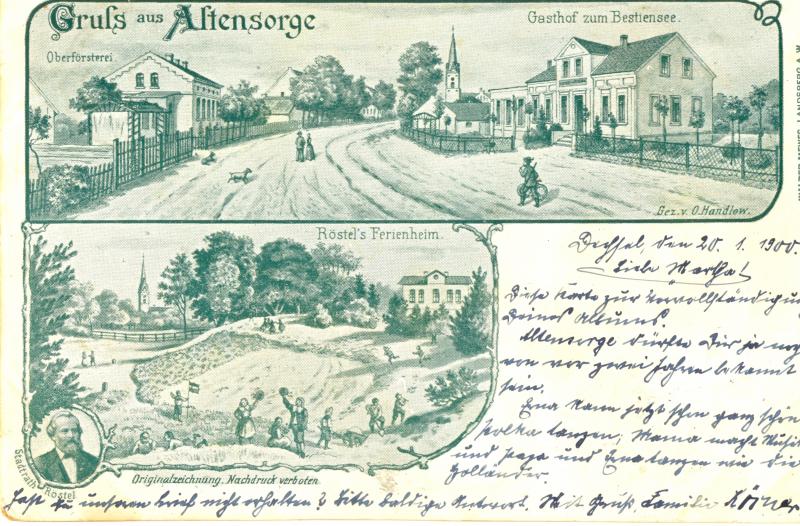 Gruss aus Altensorge
Gasthof zum Bestiensee.
Oberförsterei
Gez. v. O. Handlow.
Röstel's Ferienheim.
Stadtrath Röstel
Originalzeichnung. Nachdruck verboten
Dechsel, den 20. 1. 1900.
Liebe Martha!
Diese Karte zur Vervollständigu
Deines Albums.
Altensorge dürfte Dir ja noch
von vor zwei Jahren bekannt
sein.
Ena kann jetzt schon ganz schön
Polka tanzen, Mama macht Musik
und Papa und Ena tanzen wie die
Holländer.
Hast Du unseren Brief nicht erhalten? Bitte baldige Antwort. Mit Gruß Familie